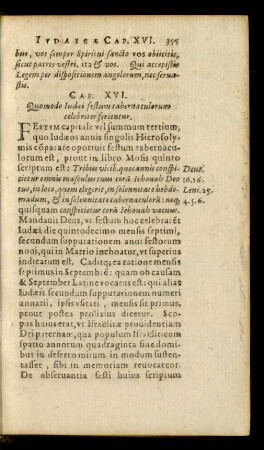 IVDAICÆ CAP. XVI. 355
bus, vos semper Spiritui sancto vos obiicitis,
sicut patres vestri, ita & vos. Qui accepistis
Legem per dispositionem angelorum, nec serua-
stis.
CAP. XVI.
Quomodo Iudæi festum tabernaculorum
celebriter ferientur.
FESTVM capitale vel summum tertium,
quo Iudæos annis singulis Hierosoly-
mis cōparare oportuit festum tabernacu-
lorum est, prout in libro Mosis quinto
scriptum est: Tribus vicib. quotannis conspi-
cietur omne masculum tuum corā Iehouah Deo
tuo, in loco, quem elegerit, in solemnitate hebdo-
madum, & in solemnitate tabernaculorū: neq;
quisquam conspicietur coram Iehouah vacuus.
Mandauit Deus, vt festum hoc celebrarēt
Iudæi die quintodecimo mensis septimi,
secundum supputationem anni festorum
noui, qui in Martio inchoatur, vt superius
indicatum est. Caditq; ea ratione mensis
septimus in Septembrē: quam ob causam
& September Latine vocatus est: qui alias
Iudæis secundum supputationem numeri
annarii, ipsis vsitati, mensis sit primus,
prout postea prolixius dicetur. Sco-
pus huius erat, vt Israëlitæ prouidentiam
Dei paternam, qua populum Israëliticum
spatio annorum quadraginta sine domi-
bus in deserto mirum in modum susten-
tasset, sibi in memoriam reuocarent.
De obseruantia festi huius scriptum
Deut.
16.16.
Leui. 25.
4. 5. 6.